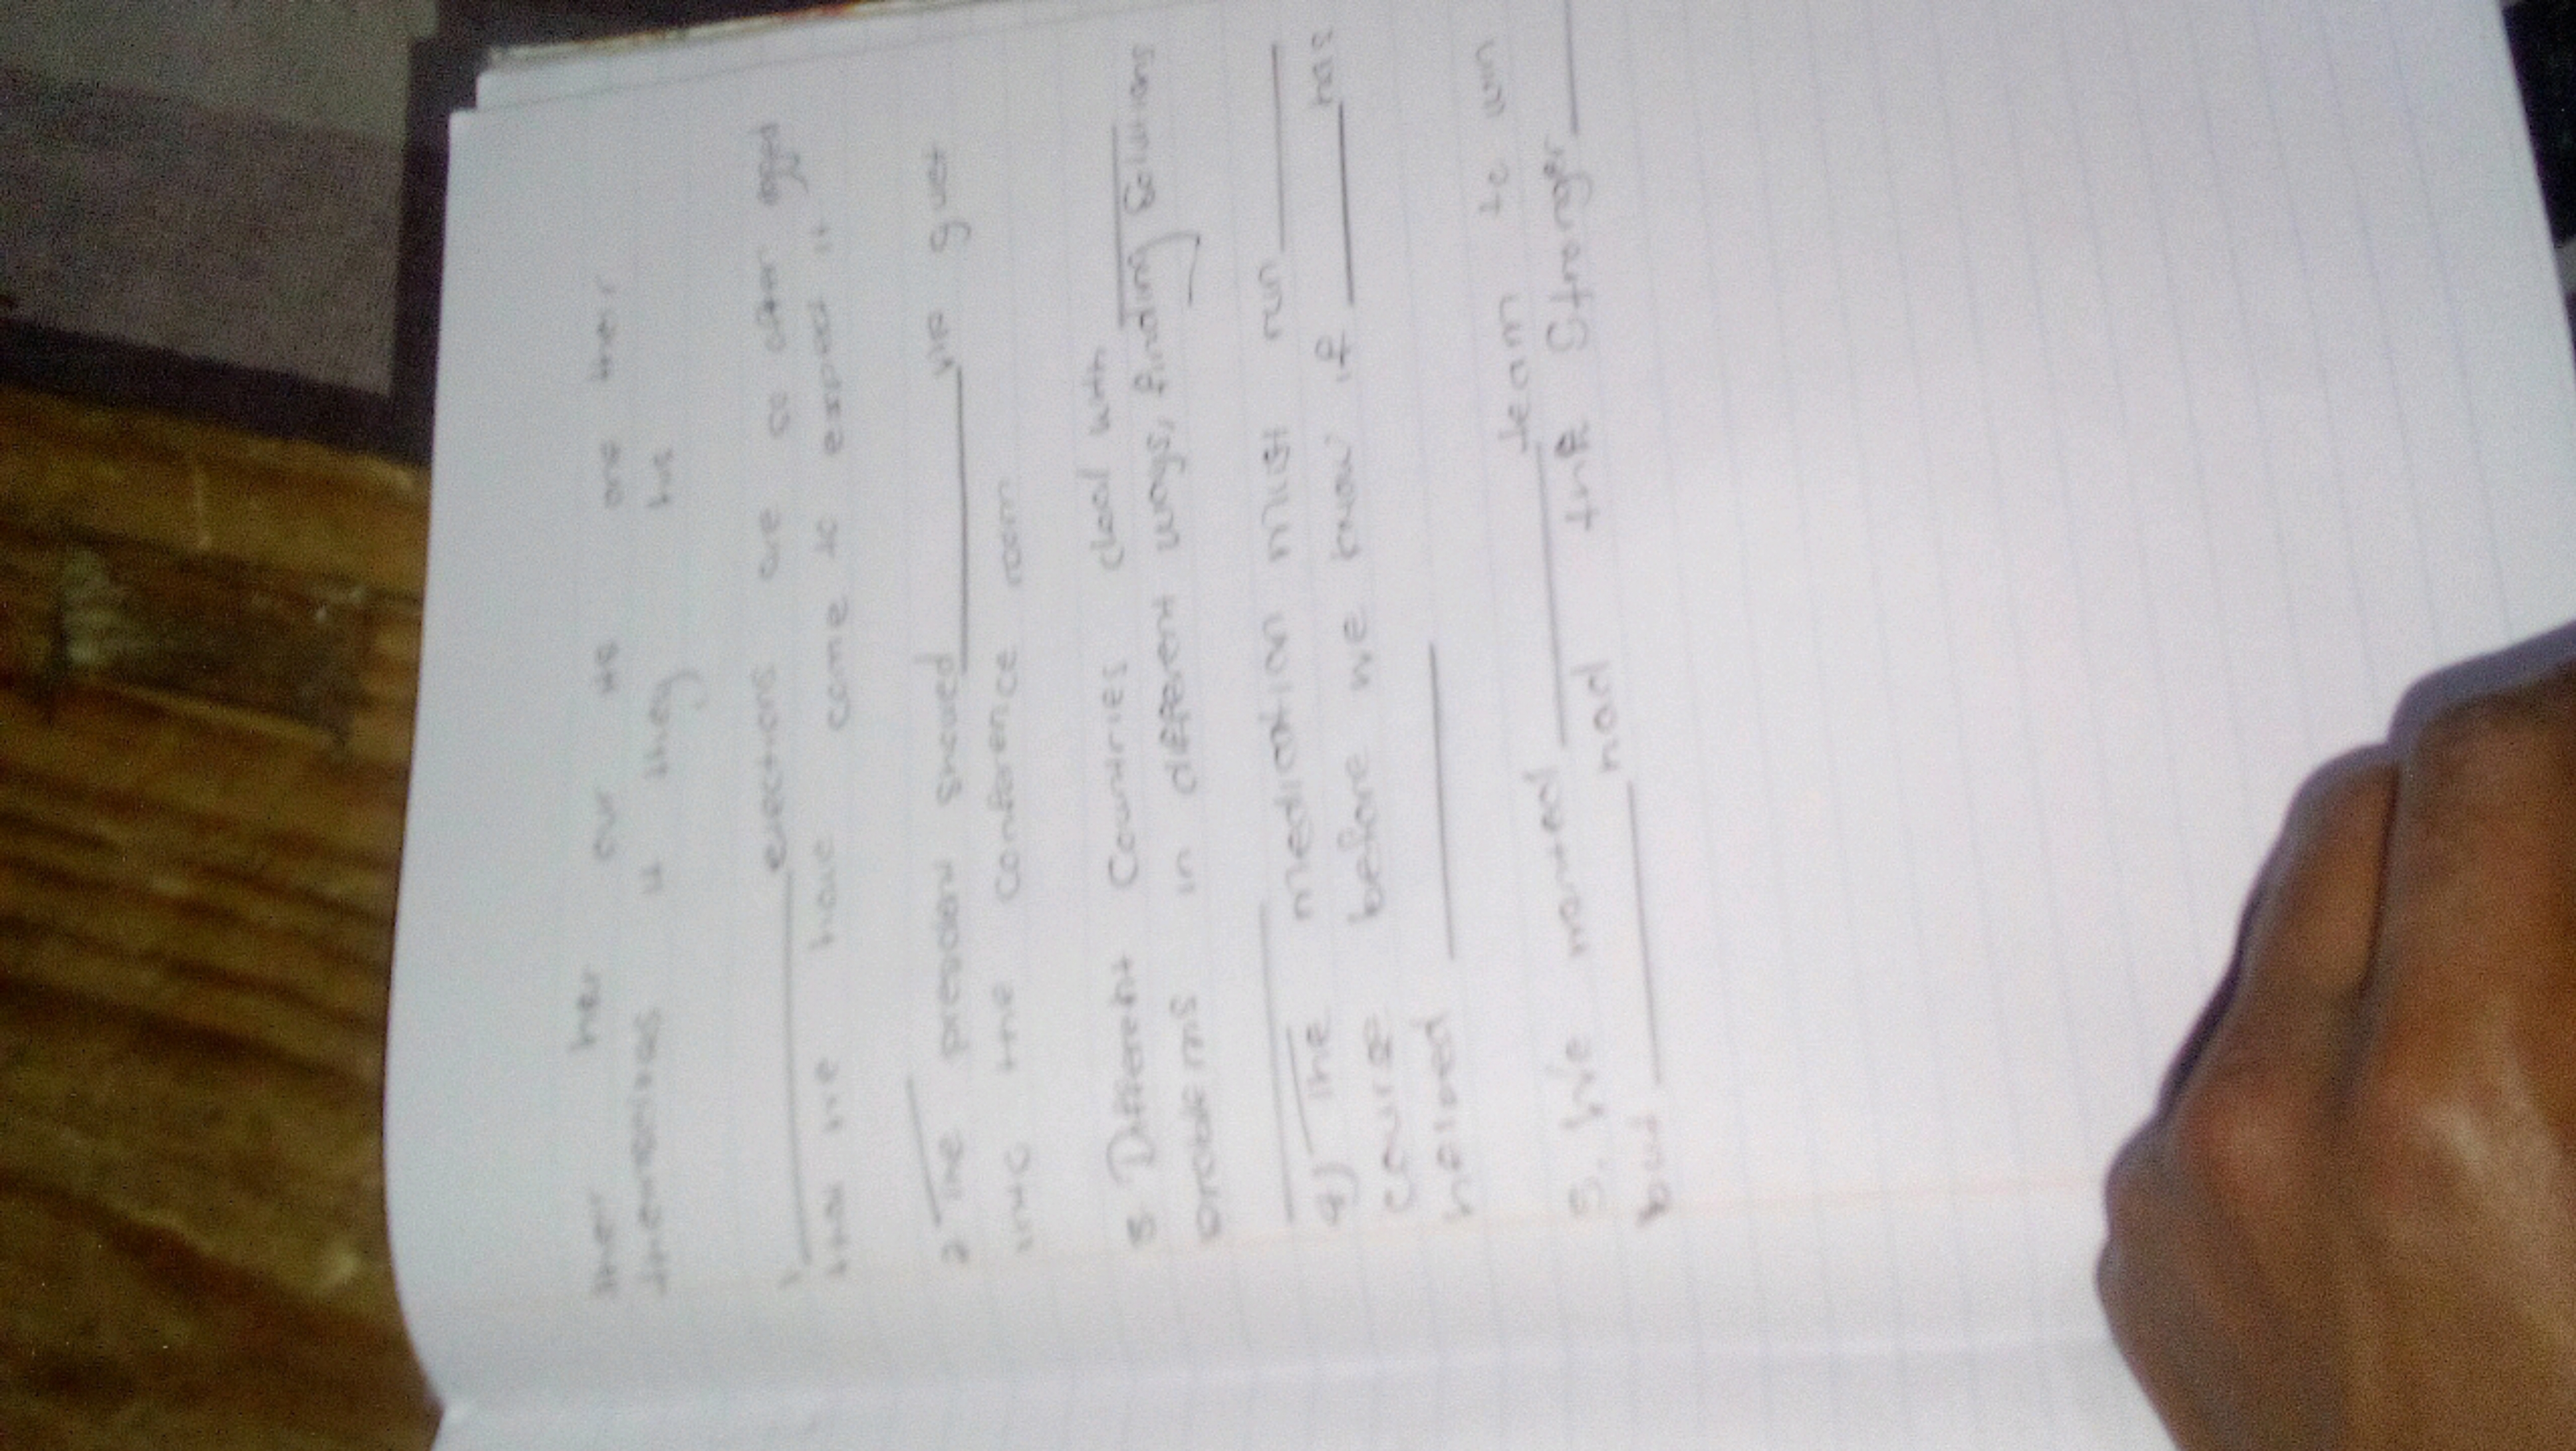 their her our us one their
themselves it they his
1 ______ elections are so often rigged
that we have come to expect it.
2 The president showed ______ his guest
into the conference room
3 Different Countries deal with ______
problems in different ways, finding solutions
______
4) The medication must run ______
course before we know if ______ has
helped ______
5. We wanted ______ team to win
but ______ had the stronger ______